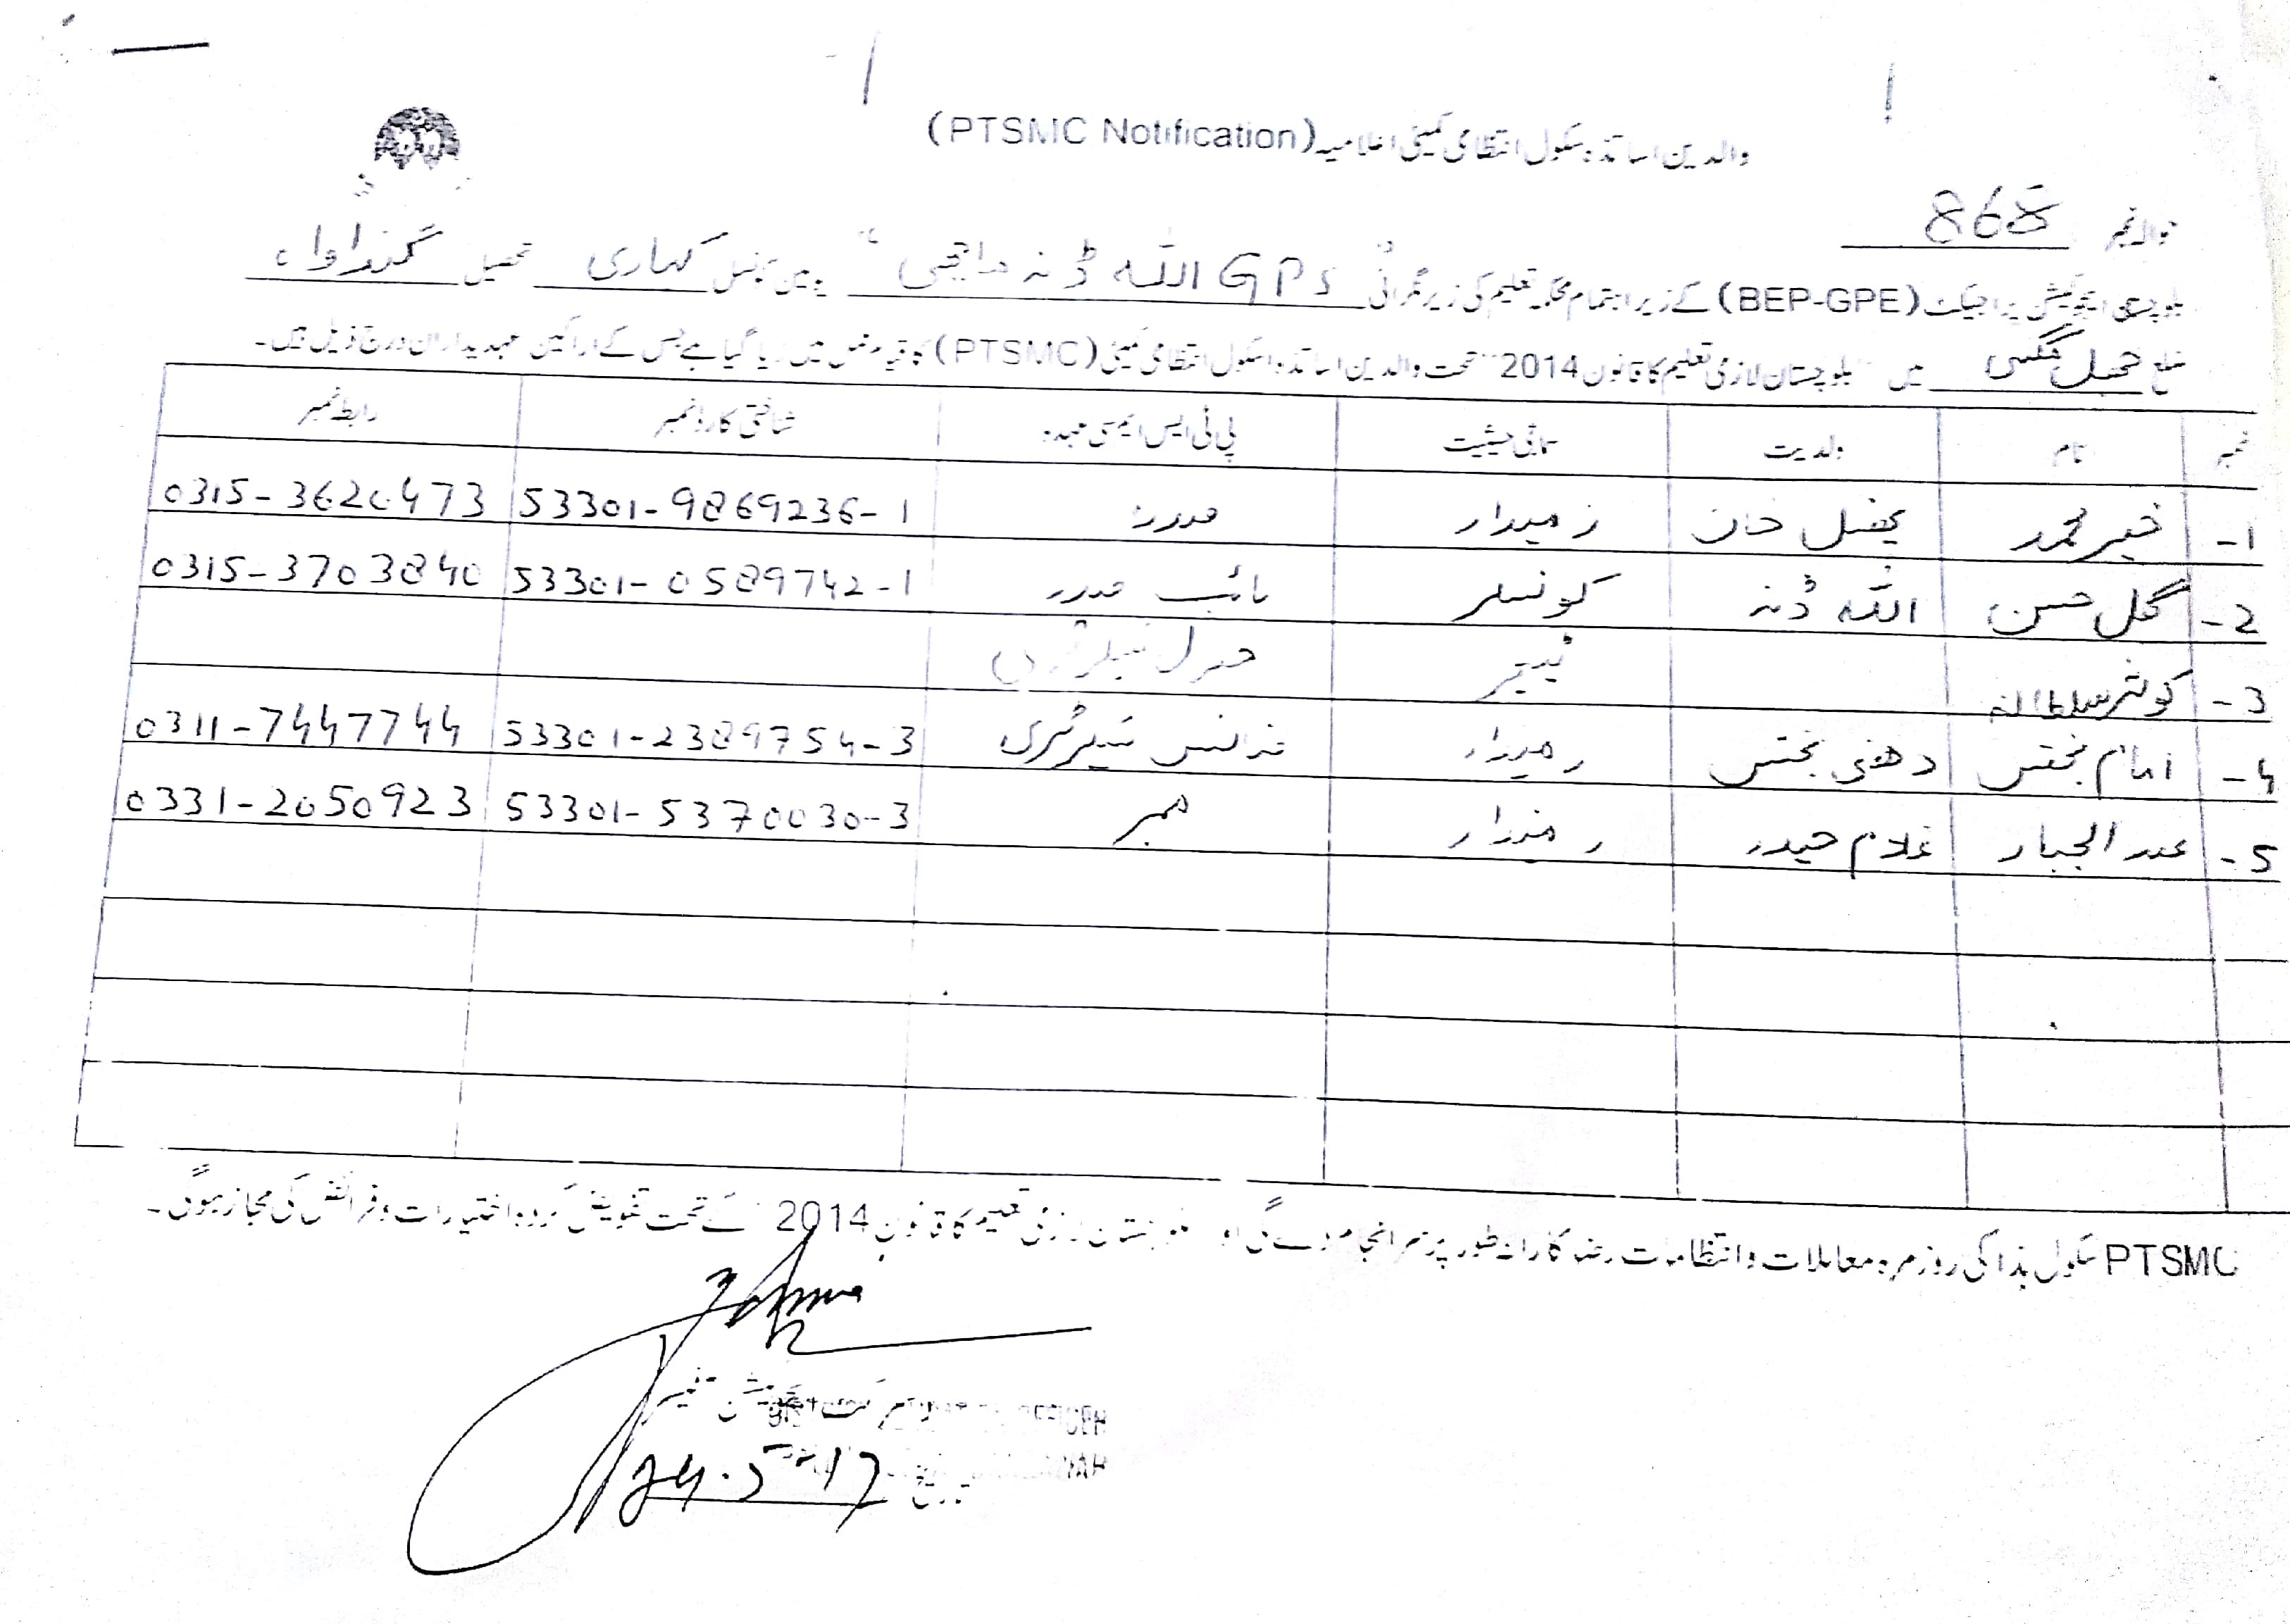 والدین اساتذہ سکول انتظامی کمیٹی اعلامیہ (PTSMC Notification)
حوالہ نمبر 868
بلوچستان ایجوکیشن پراجیکٹ (BEP-GPE) کے زیر اہتمام محکمہ تعلیم کی زیر نگرانی GPS اللہ ڈنہ ماچھی یونین کونسل کہاری تحصیل گنداواہ
ضلع جھل مگسی میں بلوچستان لازمی تعلیم کا قانون 2014 تحت والدین اساتذہ سکول انتظامی کمیٹی (PTSMC) کا قیام عمل میں لایا گیا ہے جس کے اراکین عہدیداران درج ذیل ہیں۔
نمبر نام ولدیت سماجی حیثیت پی ٹی ایس ایم سی عہدہ شناختی کارڈ نمبر رابطہ نمبر
1- خیر محمد خان زمیندار صدر 53301-9869236-1 0315-3620473
2- گل حسن اللہ ڈنہ کونسلر نائب صدر 53301-0589742-1 0315-3703840
3- کوثر سلطانہ ٹیچر جنرل سیکرٹری
4- امام بخش دھنی بخش زمیندار فنانس سیکرٹری 53301-2389754-3 0311-7447744
5- عبدالجبار غلام حیدر زمیندار ممبر 53301-5370030-3 0331-2050923
PTSMC سکول ہذا کی روزمرہ معاملات و انتظامات رضاکارانہ طور پر سرانجام دے گی اور بلوچستان لازمی تعلیم کا قانون 2014 کے تحت تفویض کردہ اختیارات و فرائض کی مجاز ہوگی۔
تاریخ 24-5-17